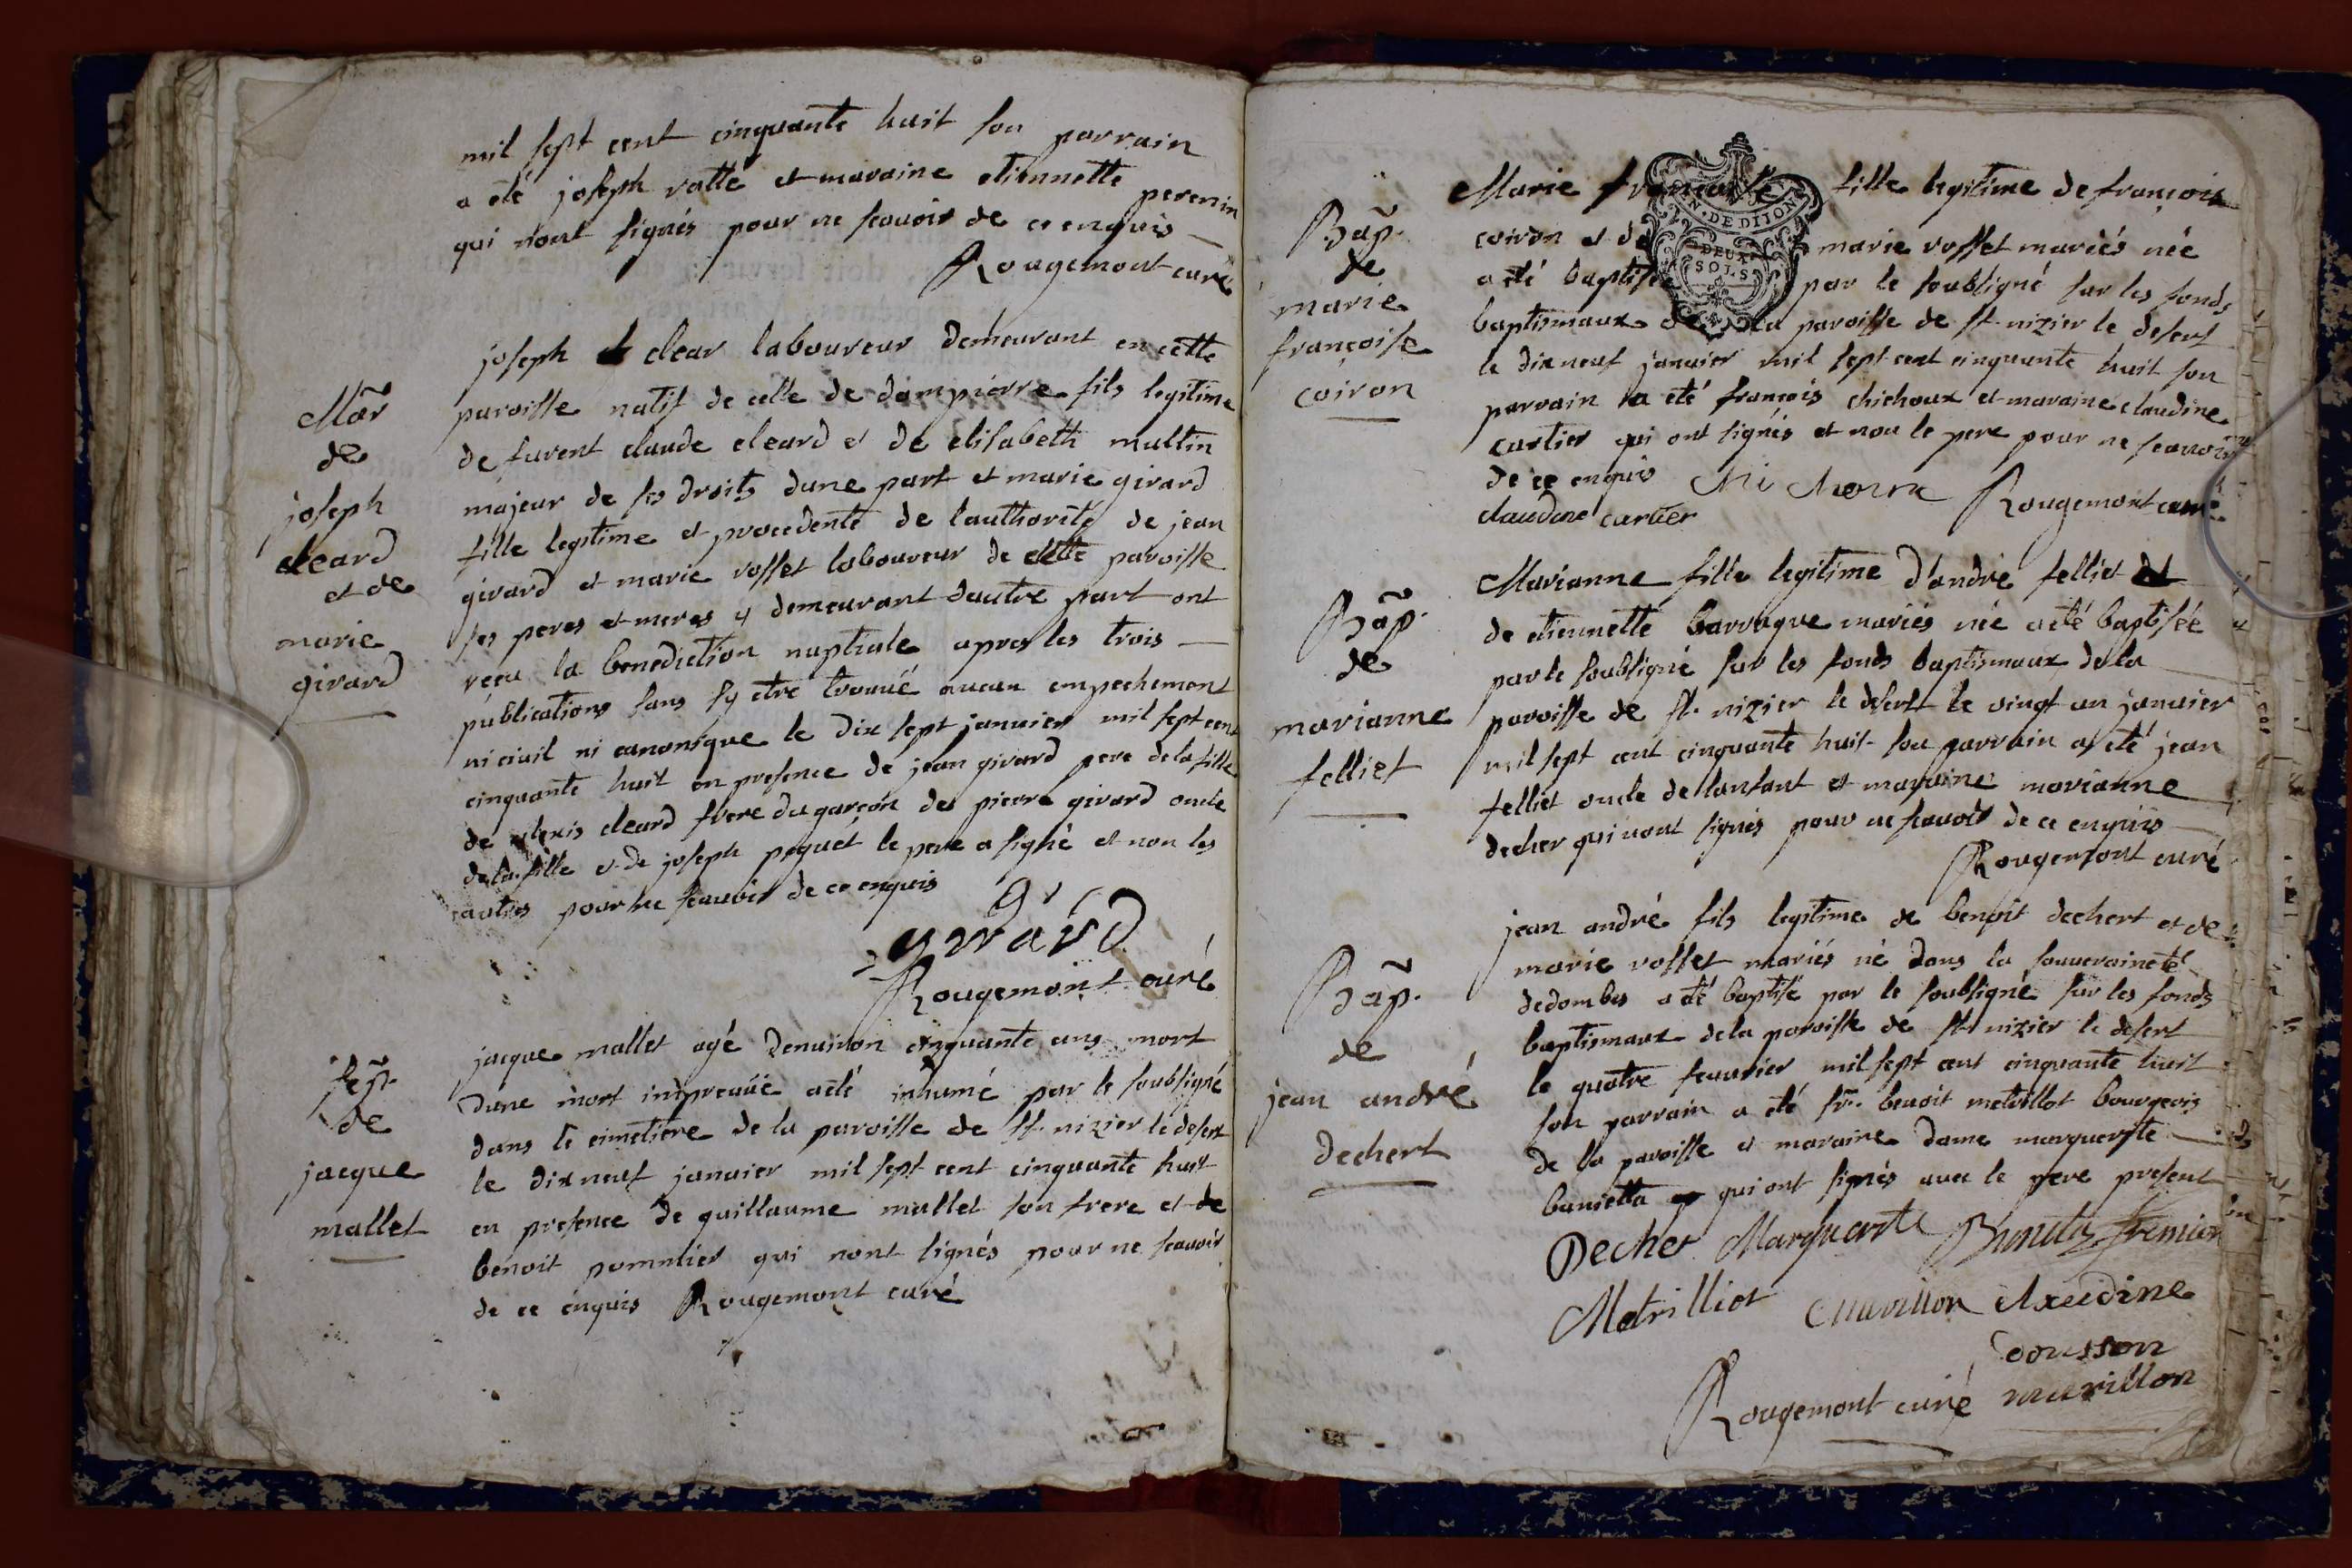 mil sept cent cinquante huit son parrain
a eté joseph vatte et maraine etiennette perenin
qui nont signés pour ne scauoir de ce enquis
Rougemont curé
Mar̃
de
joseph
cleard
et de
marie
girard
joseph clear laboureur demeurant en cette
paroisse natif de celle de dampierre fils legitime
de furent claude cleard et de elisabeth multin
majeur de ses droits dune part et marie girard
fille legitime et procedente de lauthorité de jean
girard et marie rosset laboureur de cette paroisse
ses peres et meres y demeurant dautre part ont
recu la benediction nuptiale apres les trois
publications sans sy etre trouué aucun empechement
ni ciuil ni canonique le dix sept januier mil sept cent
cinquante huit en presence de jean girard pere de la fille
de alexis cleard frere du garçon de pierre girard oncle
de la fille et de joseph poquet le pere a signé et non les
autres pour ne scauoir de ce enquis
girard
Rougemont curé
sep̃
de
jacque
mallet
jacque mallet agé denuiron cinquante ans mort
dune mort impreuüe a eté inhumé par le soubsigné
dans le cimetiere de la paroisse de st nizier le desert
le dix neuf januier mil sept cent cinquante huit
en presence de guillaume mallet son frere et de
benoit pommier qui nont signés pour ne scauoir
de ce enquis Rougemont curé
Bap̃.
de
marie
françoise
coiron
Marie françoise fille legitime de françois
coiron et de marie rosset mariés née
a eté baptisée par le soubsigné sur les fonds
baptismaux de la paroisse de st nizier le desert
le dix neuf januier mil sept cent cinquante huit son
parrain a eté françois chichoux et maraine claudine
cartier qui ont signés et non le pere pour ne scauoir
de ce enquis Chichoux Rougemont curé
claudine cartier
N. DE DIJON
DEUX
SOLS
Bap̃.
de
marianne
felliet
Marianne fille legitime d'andré felliet et
de etiennette barruque mariés née a eté baptisée
par le soubsigné sur les fonds baptismaux de la
paroisse de st. nizier le desert le vingt un januier
mil sept cent cinquante huit son parrain a eté jean
felliet oncle de lanfant et maraine marianne
decher qui nont signés pour ne scauoir de ce enquis
Rougemont curé
Bap̃.
de
jean andré
dechert
jean andré fils legitime de benoit dechert et de
marie rosset mariés né dans la souveraineté
dedombes a eté baptisé par le soubsigné sur les fonds
baptismaux de la paroisse de st nizier le desert
le quatre feuurier mil sept cent cinquante huit
son parrain a eté sr. benoit metrillot bourgeois
de la paroisse et maraine dame marguerite
banietta qui ont signés auec le pere present
Decher Marguerite
Metrilliot Cuuvillon Claudine
Rougemont curé